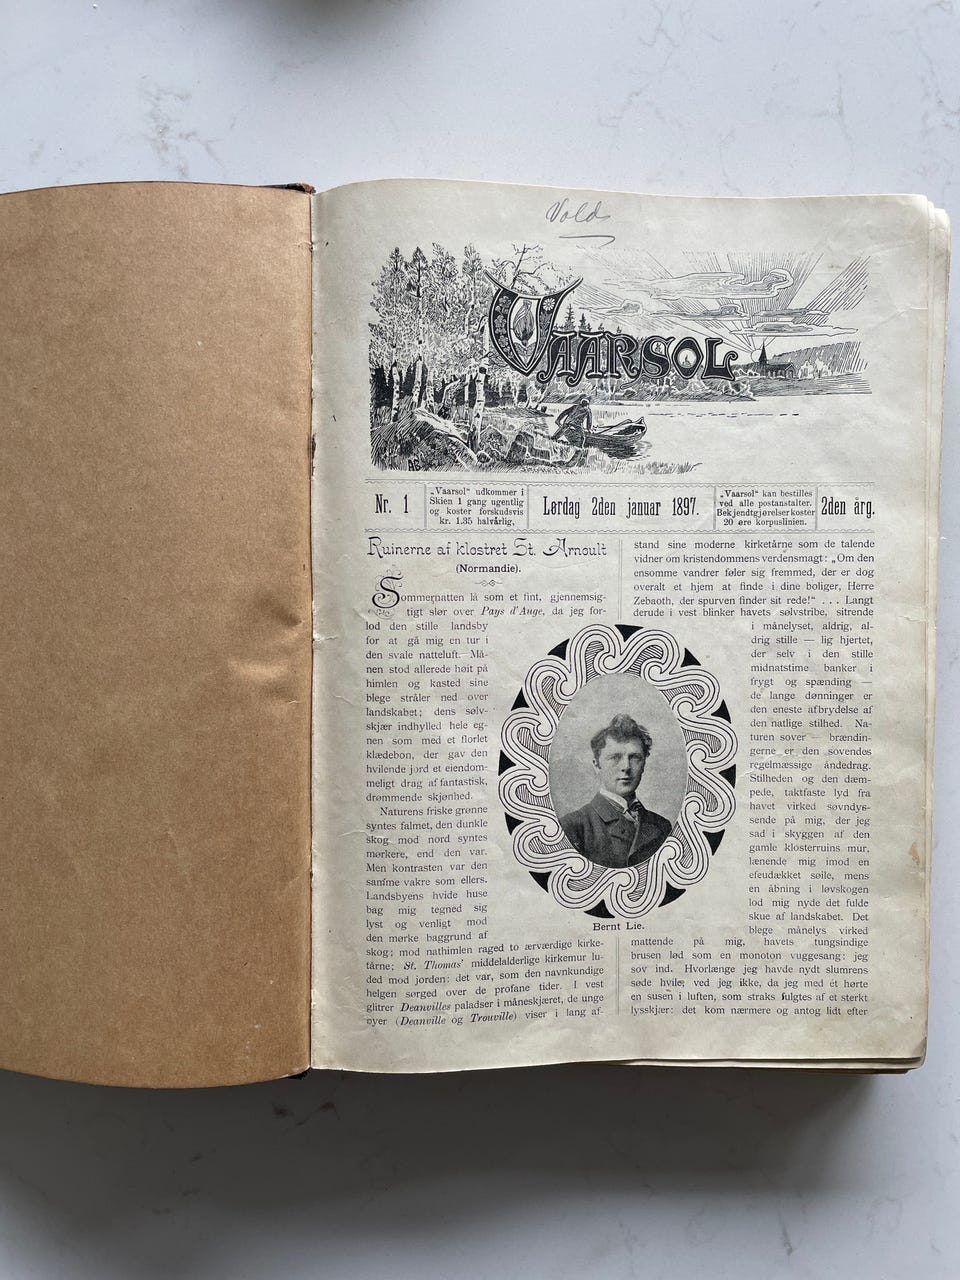 Volds
VAARSOL
AB
Nr. 1
„Vaarsol“ udkommer i
Skien 1 gang ugentlig
og koster forskudsvis
kr. 1.35 halvårlig,
Lørdag 2den januar 1897.
„Vaarsol“ kan bestilles
ved alle postanstalter.
Bekjendtgjørelser koster
20 øre korpuslinien.
2den årg.
Ruinerne af klostret St. Arnoult
(Normandie).
Sommernatten lå som et fint, gjennemsig-
tigt slør over Pays d'Auge, da jeg for-
lod den stille landsby
for at gå mig en tur i
den svale natteluft. Må-
nen stod allerede høit på
himlen og kasted sine
blege stråler ned over
landskabet; dens sølv-
skjær indhylled hele eg-
nen som med et florlet
klædebon, der gav den
hvilende jord et eiendom-
meligt drag af fantastisk,
drømmende skjønhed.
Naturens friske grønne
syntes falmet, den dunkle
skog mod nord syntes
mørkere, end den var.
Men kontrasten var den
samme vakre som ellers.
Landsbyens hvide huse
bag mig tegned sig
lyst og venligt mod
den mørke baggrund af
skog; mod nathimlen raged to ærværdige kirke-
tårne; St. Thomas' middelalderlige kirkemur lu-
ded mod jorden: det var, som den navnkundige
helgen sørged over de profane tider. I vest
glitrer Deanvilles paladser i måneskjæret, de unge
byer (Deanville og Trouville) viser i lang af-
stand sine moderne kirketårne som de talende
vidner om kristendommens verdensmagt: „Om den
ensomme vandrer føler sig fremmed, der er dog
overalt et hjem at finde i dine boliger, Herre
Zebaoth, der spurven finder sit rede!“ . . . Langt
derude i vest blinker havets sølvstribe, sitrende
i månelyset, aldrig, al-
drig stille — lig hjertet,
der selv i den stille
midnatstime banker i
frygt og spænding —
de lange dønninger er
den eneste afbrydelse af
den natlige stilhed. Na-
turen sover — brændin-
gerne er den sovendes
regelmæssige åndedrag.
Stilheden og den dæm-
pede, taktfaste lyd fra
havet virked søvndys-
sende på mig, der jeg
sad i skyggen af den
gamle klosterruins mur,
lænende mig imod en
efeudækket søile, mens
en åbning i løvskogen
lod mig nyde det fulde
skue af landskabet. Det
blege månelys virked
mattende på mig, havets tungsindige
brusen lød som en monoton vuggesang: jeg
sov ind. Hvorlænge jeg havde nydt slumrens
søde hvile, ved jeg ikke, da jeg med ét hørte
en susen i luften, som straks fulgtes af et sterkt
lysskjær: det kom nærmere og antog lidt efter
Bernt Lie.